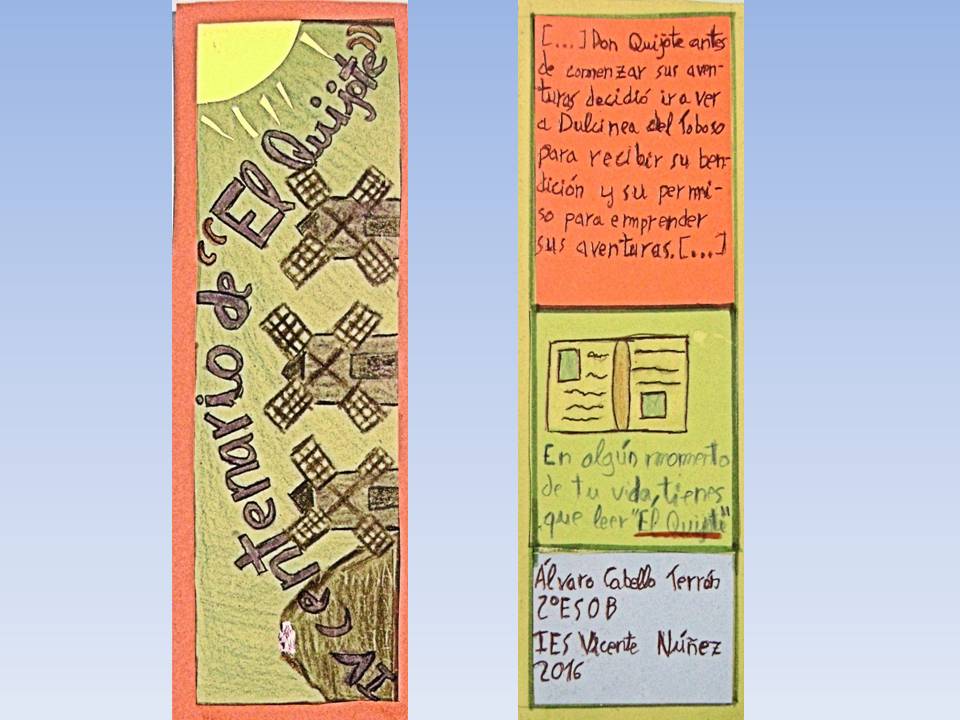 IV Centenario de "El Quijote"
[...] Don Quijote antes
de comenzar sus aven-
turas decidió ir a ver
a Dulcinea del Toboso
para recibir su ben-
dición y su permi-
so para emprender
sus aventuras. [...]
En algún momento
de tu vida, tienes
que leer "El Quijote"
Álvaro Cabello Terrón
2º ESO B
IES Vicente Núñez
2016